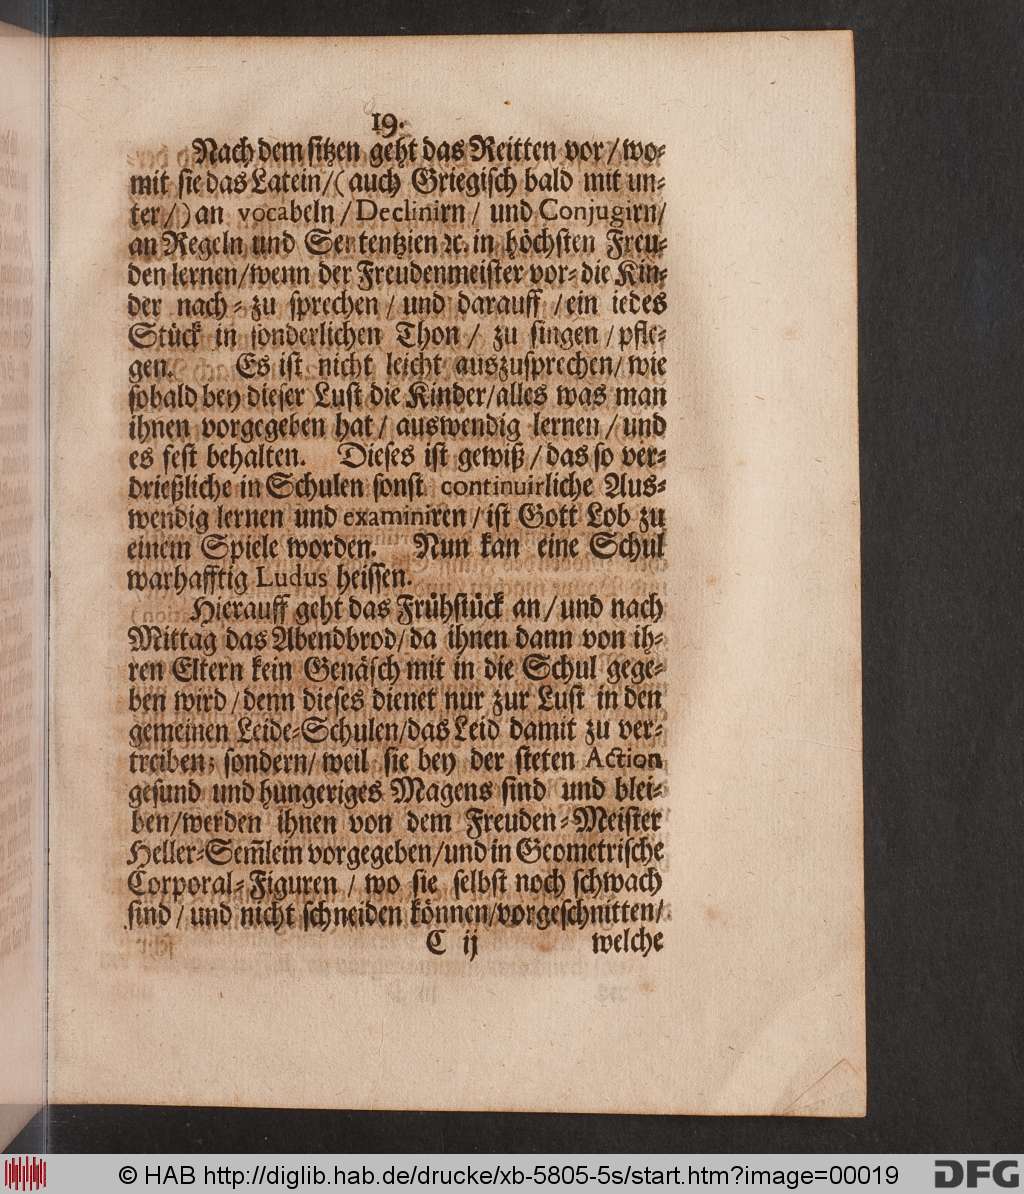 19.
Nach dem sitzen geht das Reitten vor / wo-
mit sie das Latein / (auch Griegisch bald mit un-
ter /) an vocabeln / Declinirn / und Conjugirn /
an Regeln und Sententzien ꝛc. in höchsten Freu-
den lernen / wenn der Freudenmeister vor- die Kin-
der nach- zu sprechen / und darauff / ein iedes
Stück in sonderlichen Thon / zu singen / pfle-
gen. Es ist nicht leicht auszusprechen / wie
sobald bey dieser Lust die Kinder / alles was man
ihnen vorgegeben hat / auswendig lernen / und
es fest behalten. Dieses ist gewiß / das so ver-
drießliche in Schulen sonst continuirliche Aus-
wendig lernen und examiniren / ist Gott Lob zu
einem Spiele worden. Nun kan eine Schul
warhafftig Ludus heissen.
Hierauff geht das Frühstück an / und nach
Mittag das Abendbrod / da ihnen dann von ih-
ren Eltern kein Genäsch mit in die Schul gege-
ben wird / denn dieses dienet nur zur Lust in den
gemeinen Leide-Schulen / das Leid damit zu ver-
treiben; sondern / weil sie bey der steten Action
gesund und hungeriges Magens sind und blei-
ben / werden ihnen von dem Freuden-Meister
Heller-Sem̃lein vorgegeben / und in Geometrische
Corporal-Figuren / wo sie selbst noch schwach
sind / und nicht schneiden können / vorgeschnitten /
C ij welche
© HAB http://diglib.hab.de/drucke/xb-5805-5s/start.htm?image=00019
DFG